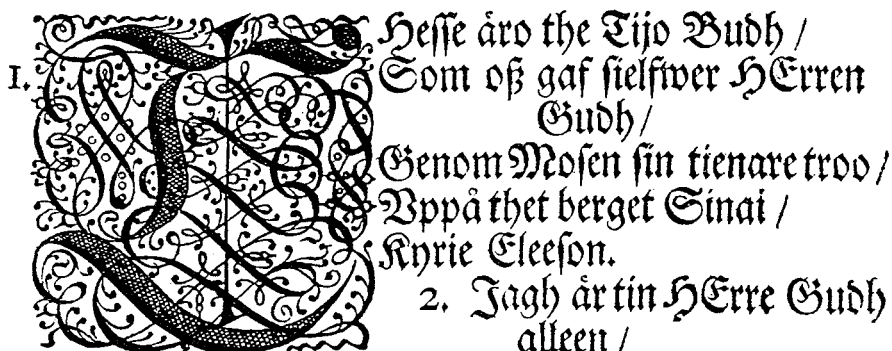 1. THesse äro the Tijo Budh /
Som oß gaf sielfwer HErren
Gudh /
Genom Mosen sin tienare troo /
Vppå thet berget Sinai /
Kyrie Eleeson.
2. Jagh är tin HErre Gudh
alleen /